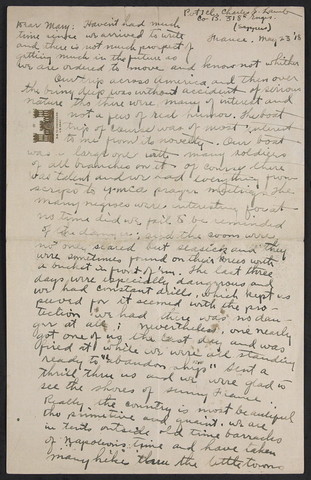 Pvt. 1cl. Charles J.
Co B. 318th Engrs.
(Sappers)
France, May 23 '18
Dear Mary: Haven't had much
time since we arrived to write
and there is not much prospect of
getting much in the future as
we are ordered to move and know not whither
Our trip across America and then over
the briny deep was without accident of serious
nature tho there were many of interest and
not a few of real humor. The boat
trip of course was of most interest
to me from its novelty. Our boat
was a large one with many soldiers
of all branches on it. Of course there
was talent and we had everything from
scraps to Y-M-C-A prayer meeting. The
many negroes were interesting for at
no time did we fail to be reminded
of the danger; and the coons were
not only scared but seasick and they
were sometimes found on their knees with
a bucket in front of 'em. The last three
days were especially dangerous and
we had constant drills, which kept us
peeved for it seemed with the pro-
tection we had there was no dan-
ger at all; nevertheless, one nearly
got one of us the last day and was
fired at while we were all standing
ready to "abandon ship" Sent a
thrill thru us and we were glad to
see the shores of sunny France.
Really the country is most beautiful
tho primitive and quaint. We are
in tents outside old time barracks
of Napoleon's time and have taken
many hike thru the little towns